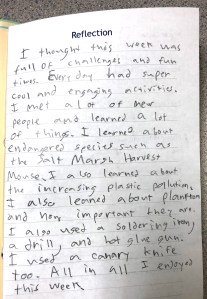 Reflection
I thought this week was
full of challenges and fun
times. Every day had super
cool and engaging activities.
I met a lot of new
people and learned a lot
of things. I learned about
endangered species such as
the Salt Marsh Harvest
Mouse. I also learned about
the increasing plastic pollution.
I also learned about plankton
and how important they are.
I also used a soldering iron,
a drill, and hot glue gun.
I used a canary knife
too. All in all I enjoyed
this week